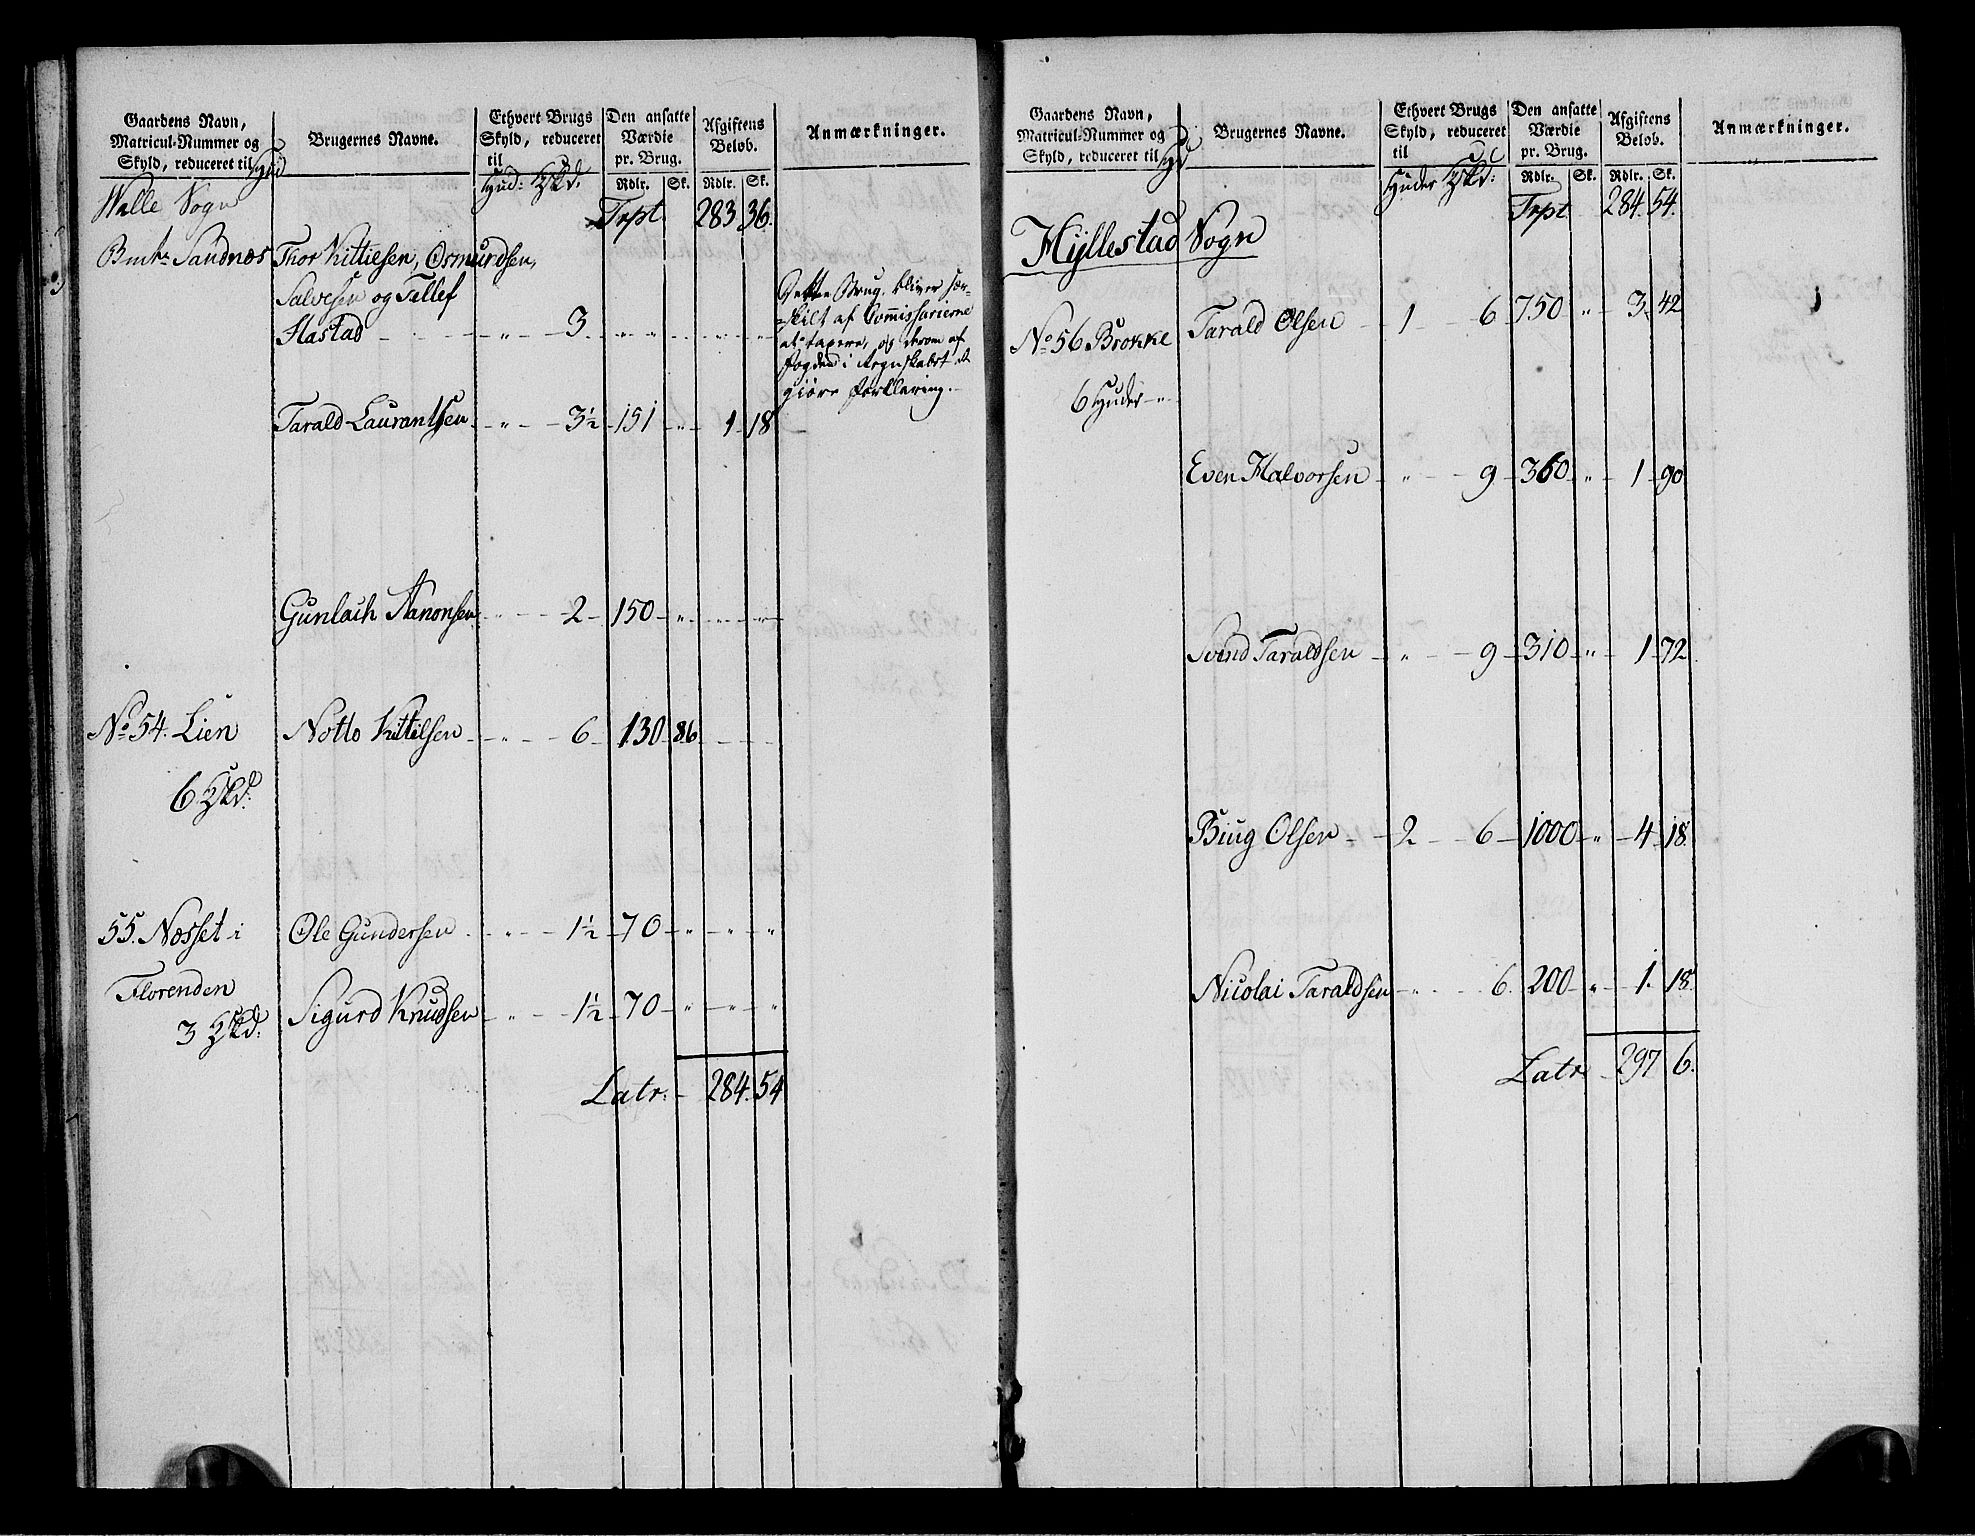 Gaardens Navn,
Matricul-Nummer og
Skyld, reduceret til Hud
Brugernes Navne.
Ethvert Brugs
Skyld, reduceret
til
Hud:
Den ansatte
Værdie
pr. Brug.
Rdlr. Sk.
Afgiftens
Belob.
Rdlr. Sk.
Anmærkninger.
Walle Sogn
Trpt. 283 36.
Sandnæs Thor Kittilsen, Osmundsen,
Salvesen og Tallef
Hastad - " - 3. - " - " - " - "
Dette Brug, bliver sær-
skilt af Commissarierne
at taxere, og derom af
Fogden i Regnskabet at
giöre Forklaring.
Tarald Laurantsen - " - 3½ - 151 - " - 1 - 18
Gunlach Aanonsen - " - 2 - 150 - " - " - "
No 54. Lien Notto Kittilsen - " - 6 - 130 86 - - -
6
55. Næsset i Ole Gundersen - " - 1½ - 70 - " - " - "
Florenden
3
Sigurd Knudsen - " - 1½ - 70 - " - " - "
Latr: - 284. 54
Gaardens Navn,
Matricul-Nummer og
Skyld, reduceret til Hyd
Brugernes Navne.
Ethvert Brugs
Skyld, reduceret
til
Huder
Den ansatte
Værdie
pr. Brug.
Rdlr. Sk.
Afgiftens
Belob.
Rdlr. Sk.
Anmærkninger.
Trpt 284. 54.
Hyllestad Sogn
No 56 Brokke Tarald Olsen - 1 - 6 - 750 " - 3 - 42
6 Huder - "
Even Halvorsen - " - 9 - 360 - " - 1 - 90
Svend Taraldsen - " - 9 - 310 - " - 1 - 72
Biug Olsen - 2 - 6 - 1000 - " - 4 - 18.
Nicolai Taraldsen - " - 6. 200 - " - 1. 18.
Latr - 297 6.